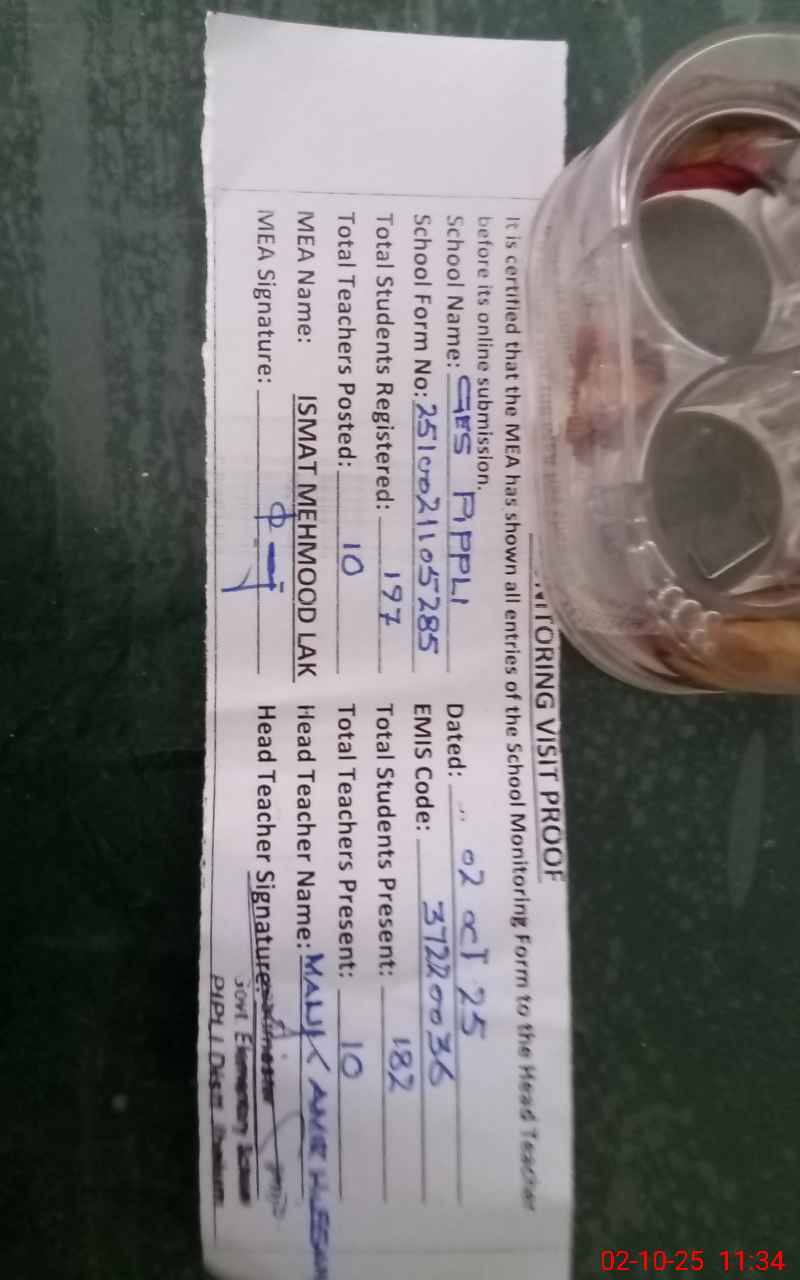 NITORING VISIT PROOF
It is certified that the MEA has shown all entries of the School Monitoring Form to the Head Teacher
before its online submission.
School Name: GES PIPPLI Dated: 02 OCT 25
School Form No: 2510021105285 EMIS Code: 37220036
Total Students Registered: 197 Total Students Present: 182
Total Teachers Posted: 10 Total Teachers Present: 10
MEA Name: ISMAT MEHMOOD LAK Head Teacher Name: MALIK AMIR HUSSAIN
MEA Signature: Head Teacher Signature:
Govt. Elementary School
PIPLI Distt.
02-10-25 11:34